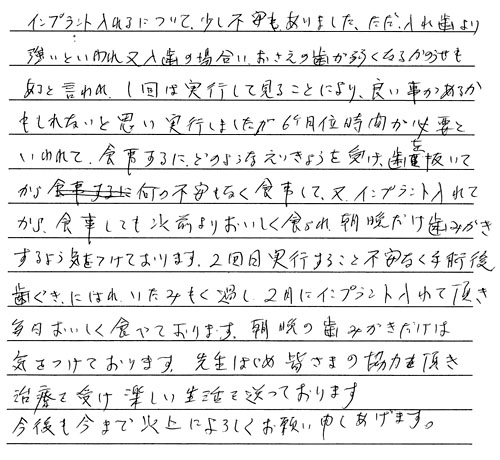 インプラント入れるについて、少し不安もありました、ただ、入れ歯より
強いといわれ又入歯の場合い、おさえの歯が弱くなるかのせも
あると言われ、1回は実行して見ることにより、良い事があるか
もしれないと思い実行しましたが6ケ月位時間が必要と
いわれて、食事するに、どのようなえいきょうを受け、歯を抜いて
から 食事するに 何の不安もなく食事して、又、インプラント入れて
から、食事しても以前よりおいしく食られ、朝晩だけ歯みがき
するよう気をつけております、2回目実行すること不安なく手術後
歯ぐき、にはれ、いたみもく過し、2月にインプラント入れて頂き
毎日おいしく食べております、朝晩の歯みがきだけは
気をつけております、先生はじめ皆さまの協力を頂き
治療を受け楽しい生活を送っております
今後も今まで以上によろしくお願い申しあげます。